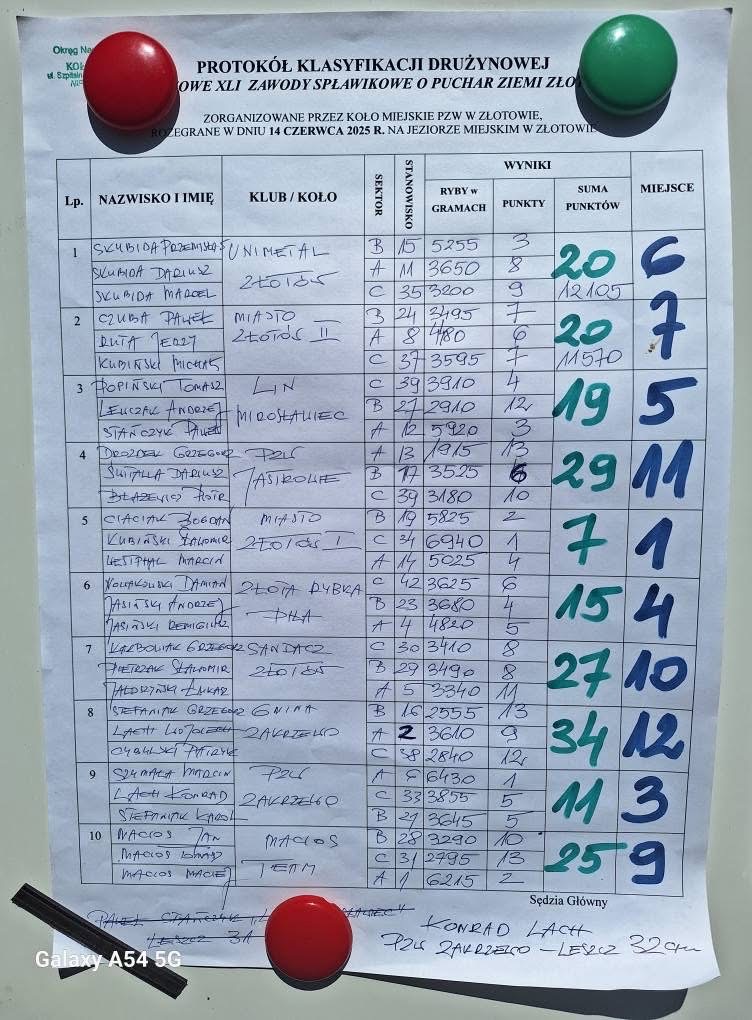 Okręg Na
KOŁ
ul. Szpitaln
PROTOKÓŁ KLASYFIKACJI DRUŻYNOWEJ
OWE XLI ZAWODY SPŁAWIKOWE O PUCHAR ZIEMI ZŁO
ZORGANIZOWANE PRZEZ KOŁO MIEJSKIE PZW W ZŁOTOWIE,
ROZEGRANE W DNIU 14 CZERWCA 2025 R. NA JEZIORZE MIEJSKIM W ZŁOTOWIE
Lp. NAZWISKO I IMIĘ KLUB / KOŁO SEKTOR STANOWISKO WYNIKI MIEJSCE
RYBY w GRAMACH PUNKTY SUMA PUNKTÓW
1 SKUBIDA PRZEMYSŁAW UNIMETAL B 15 5255 3 20 6
SKUBIDA DARIUSZ ZŁOTÓW A 11 3650 8
SKUBIDA MARCEL C 35 3200 9 12105
2 CZUBA PAWEŁ MIASTO B 24 3495 7 20 7
RUTA JERZY ZŁOTÓW II A 8 4480 6
KUBIŃSKI MICHAŁ C 37 3595 7 11570
3 POPIŃSKI TOMASZ LIN C 39 3910 4 19 5
LEUCZAK ANDRZEJ MIROSŁAWIEC B 27 2910 12
STAŃCZYK PAWEŁ A 12 5920 3
4 DROZDEK GRZEGORZ PZW A 13 1915 13 29 11
ŚWITAŁŁA DARIUSZ JASTROWIE B 17 3525 6
BŁAŻEWICZ PIOTR C 39 3180 10
5 CIACIAK BOGDAN MIASTO B 19 5825 2 7 1
KUBIŃSKI SŁAWOMIR ZŁOTÓW I C 34 6940 1
WESTPHAL MARCIN A 14 5025 4
6 NOWAKOWSKI DAMIAN ZŁOTA RYBKA C 42 3625 6 15 4
JASIŃSKI ANDRZEJ PIŁA B 23 3680 4
JASIŃSKI REMIGIUSZ A 4 4820 5
7 KARBOWIAK GRZEGORZ SANDACZ C 30 3410 8 27 10
PIETRZAK SŁAWOMIR ZŁOTÓW B 29 3490 8
ŁUKASZ A 5 3340 11
8 STEFANIAK GRZEGORZ GMINA B 16 2555 13 34 12
LACH WOJCIECH ZAKRZEWO A 2 3610 9
CYBULSKI PATRYK C 38 2840 12
9 SZYMAŁA MARCIN PZW A 6 6430 1 11 3
LACH KONRAD ZAKRZEWO C 33 3855 5
STEFANIAK KAROL B 21 3645 5
10 MACIOS JAN MACIOS B 28 3290 10 25 9
MACIOS TEAM C 31 2795 13
MACIOS MACIEJ A 1 6215 2
Sędzia Główny
PAWEŁ STAŃCZYK
LESZCZ 31
KONRAD LACH
PZW ZAKRZEWO – LESZCZ 32 cm
Galaxy A54 5G